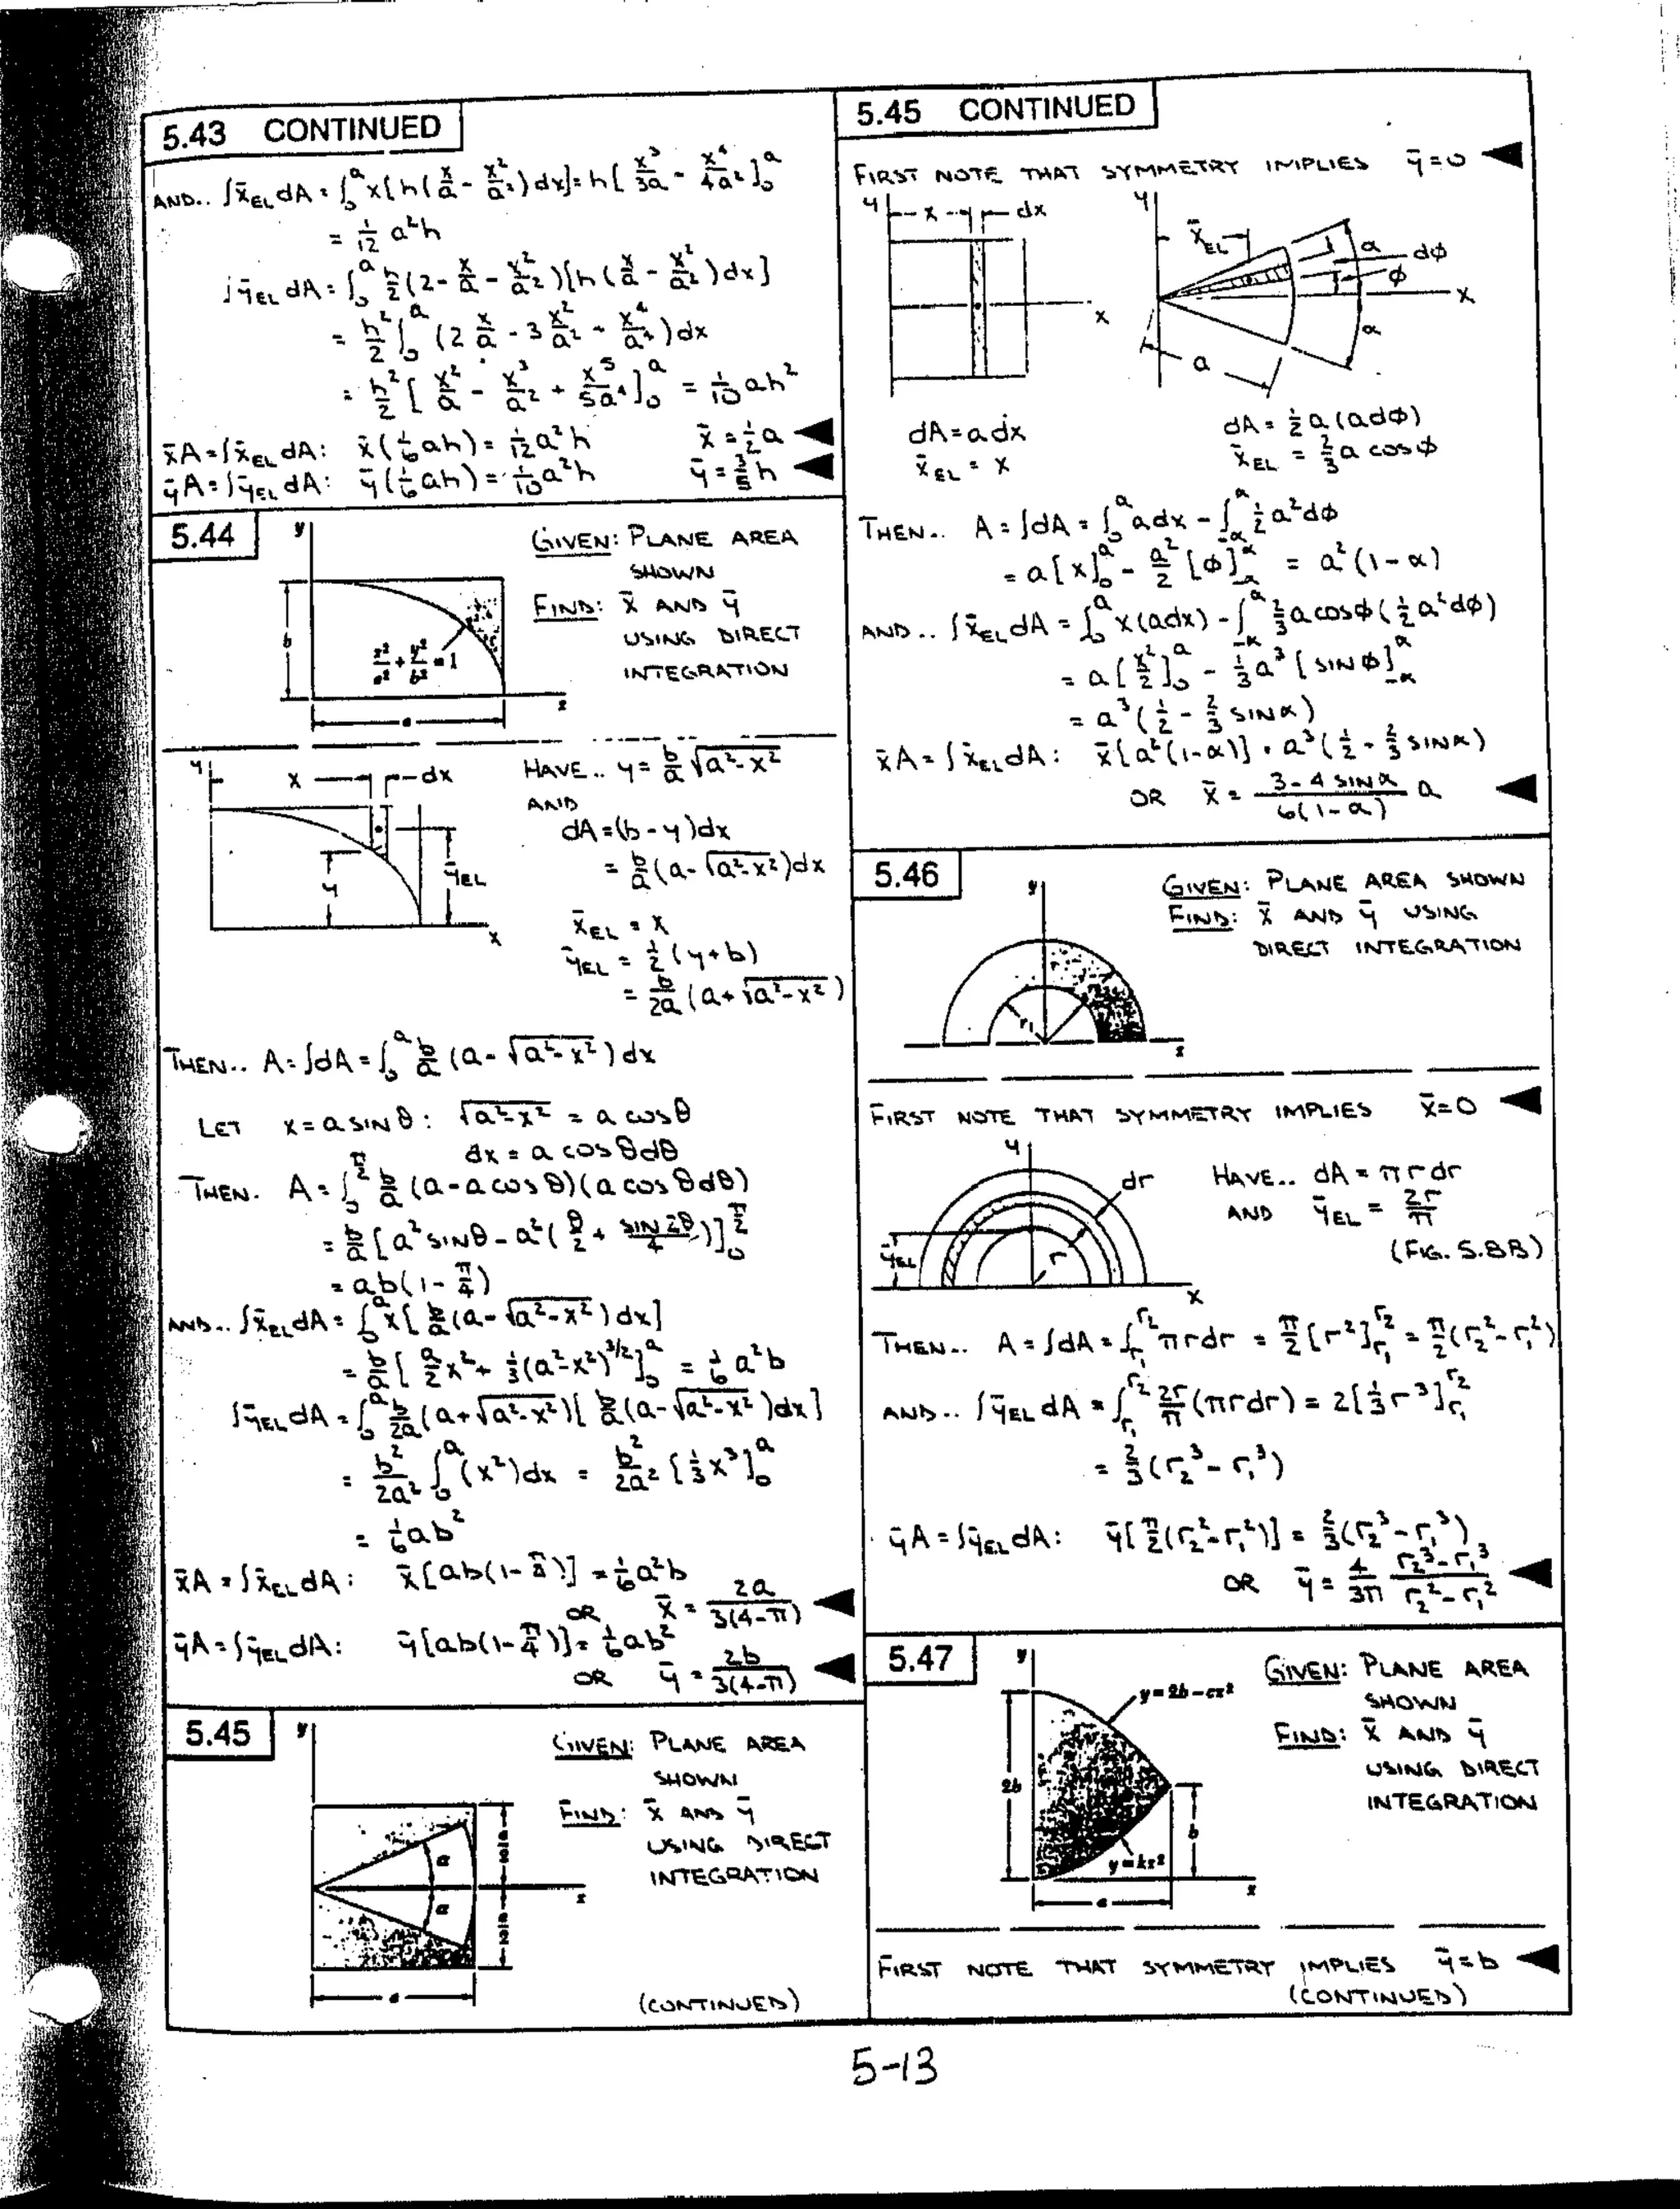 5.43 CONTINUED
AND.. ∫x̄EL dA = ∫₀ᵃ x[h(x/a - x²/a²)dx] = h[x³/3a - x⁴/4a²]₀ᵃ
= 1/12 a²h
∫ȳEL dA = ∫₀ᵃ h/2(2 - x/a - x²/a²)[h(x/a - x²/a²)dx]
= h²/2 ∫₀ᵃ (2 x/a - 3 x²/a² + x⁴/a⁴)dx
= h²/2 [x²/a - x³/a² + x⁵/5a⁴]₀ᵃ = 1/10 ah²
x̄A = ∫x̄EL dA: x̄(1/6 ah) = 1/12 a²h x̄ = 1/2 a ◀
ȳA = ∫ȳEL dA: ȳ(1/6 ah) = 1/10 a²h ȳ = 3/5 h ◀
5.44
GIVEN: PLANE AREA
SHOWN
FIND: x̄ AND ȳ
USING DIRECT
INTEGRATION
y
b
x²/a² + y²/b² = 1
x
a
HAVE.. y = b/a √(a²-x²)
AND
dA = (b-y)dx
= b/a (a-√(a²-x²))dx
x̄EL = x
ȳEL = 1/2 (y+b)
= b/2a (a+√(a²-x²))
y
x dx
y
ȳEL
x
THEN.. A = ∫dA = ∫₀ᵃ b/a (a-√(a²-x²))dx
LET x = a SIN θ: √(a²-x²) = a cos θ
dx = a cos θdθ
THEN. A = ∫₀^(π/2) b/a (a-a cos θ)(a cos θdθ)
= b/a [a² SIN θ - a²(θ/2 + SIN 2θ/4)]₀^(π/2)
= ab(1-π/4)
AND.. ∫x̄EL dA = ∫₀ᵃ x[b/a(a-√(a²-x²))dx]
= b/a [a/2 x² + 1/3(a²-x²)^(3/2)]₀ᵃ = 1/6 a²b
∫ȳEL dA = ∫₀ᵃ b/2a (a+√(a²-x²))[b/a(a-√(a²-x²))dx]
= b²/2a² ∫₀ᵃ (x²)dx = b²/2a² [1/3 x³]₀ᵃ
= 1/6 ab²
x̄A = ∫x̄EL dA: x̄[ab(1-π/4)] = 1/6 a²b
OR x̄ = 2a/3(4-π) ◀
ȳA = ∫ȳEL dA: ȳ[ab(1-π/4)] = 1/6 ab²
OR ȳ = 2b/3(4-π) ◀
5.45
GIVEN: PLANE AREA
SHOWN
FIND: x̄ AND ȳ
USING DIRECT
INTEGRATION
y
α
α
a/2
a/2
x
a
(CONTINUED)
5.45 CONTINUED
FIRST NOTE THAT SYMMETRY IMPLIES ȳ = 0 ◀
y x dx
x
y
x̄EL
α
dφ
φ
x
α
a
dA = a dx
x̄EL = x
dA = 1/2 a(adφ)
x̄EL = 2/3 a cos φ
THEN.. A = ∫dA = ∫₀ᵃ adx - ∫₋α^α 1/2 a²dφ
= a[x]₀ᵃ - a²/2 [φ]₋α^α = a²(1-α)
AND.. ∫x̄EL dA = ∫₀ᵃ x(adx) - ∫₋α^α 2/3 a cos φ(1/2 a²dφ)
= a[x²/2]₀ᵃ - 1/3 a³[SIN φ]₋α^α
= a³(1/2 - 2/3 SIN α)
x̄A = ∫x̄EL dA: x̄[a²(1-α)] = a³(1/2 - 2/3 SIN α)
OR x̄ = (3-4 SIN α)/6(1-α) a ◀
5.46
GIVEN: PLANE AREA SHOWN
FIND: x̄ AND ȳ USING
DIRECT INTEGRATION
y
r₁
x
FIRST NOTE THAT SYMMETRY IMPLIES x̄ = 0 ◀
y
dr
ȳEL
r
x
HAVE.. dA = πrdr
AND ȳEL = 2r/π
(FIG. 5.8B)
THEN.. A = ∫dA = ∫r₁^r₂ πrdr = π/2 [r²]r₁^r₂ = π/2(r₂²-r₁²)
AND.. ∫ȳEL dA = ∫r₁^r₂ 2r/π (πrdr) = 2[1/3 r³]r₁^r₂
= 2/3 (r₂³-r₁³)
ȳA = ∫ȳEL dA: ȳ[π/2(r₂²-r₁²)] = 2/3(r₂³-r₁³)
OR ȳ = 4/3π (r₂³-r₁³)/(r₂²-r₁²) ◀
5.47
GIVEN: PLANE AREA
SHOWN
FIND: x̄ AND ȳ
USING DIRECT
INTEGRATION
y
y=2b-cx²
2b
b
y=kx²
x
a
FIRST NOTE THAT SYMMETRY IMPLIES ȳ = b ◀
(CONTINUED)
5-13